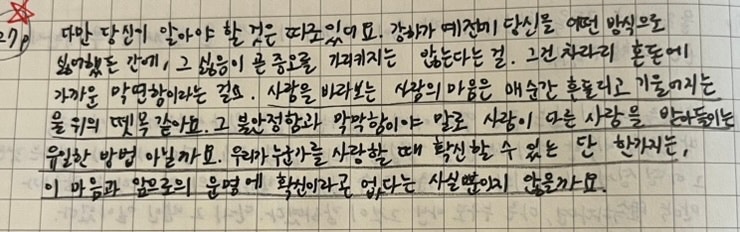 27p 다만 당신이 알아야 할 것은 따로 있어요. 강하가 예전에 당신을 어떤 방식으로
싫어했든 간에, 그 싫음이 곧 증오를 가리키지는 않는다는 걸. 그건 차라리 혼돈에
가까운 막연함이라는 걸요. 사람을 바라보는 사람의 마음은 매순간 흔들리고 기울어지는
물 위의 뗏목 같아요. 그 불안정함과 막막함이야 말로 사람이 다른 사람을 받아들이는
유일한 방법 아닐까요. 우리가 누군가를 사랑할 때 확신할 수 있는 단 한가지는,
이 마음과 앞으로의 운명에 확신이라곤 없다는 사실뿐이지 않을까요.